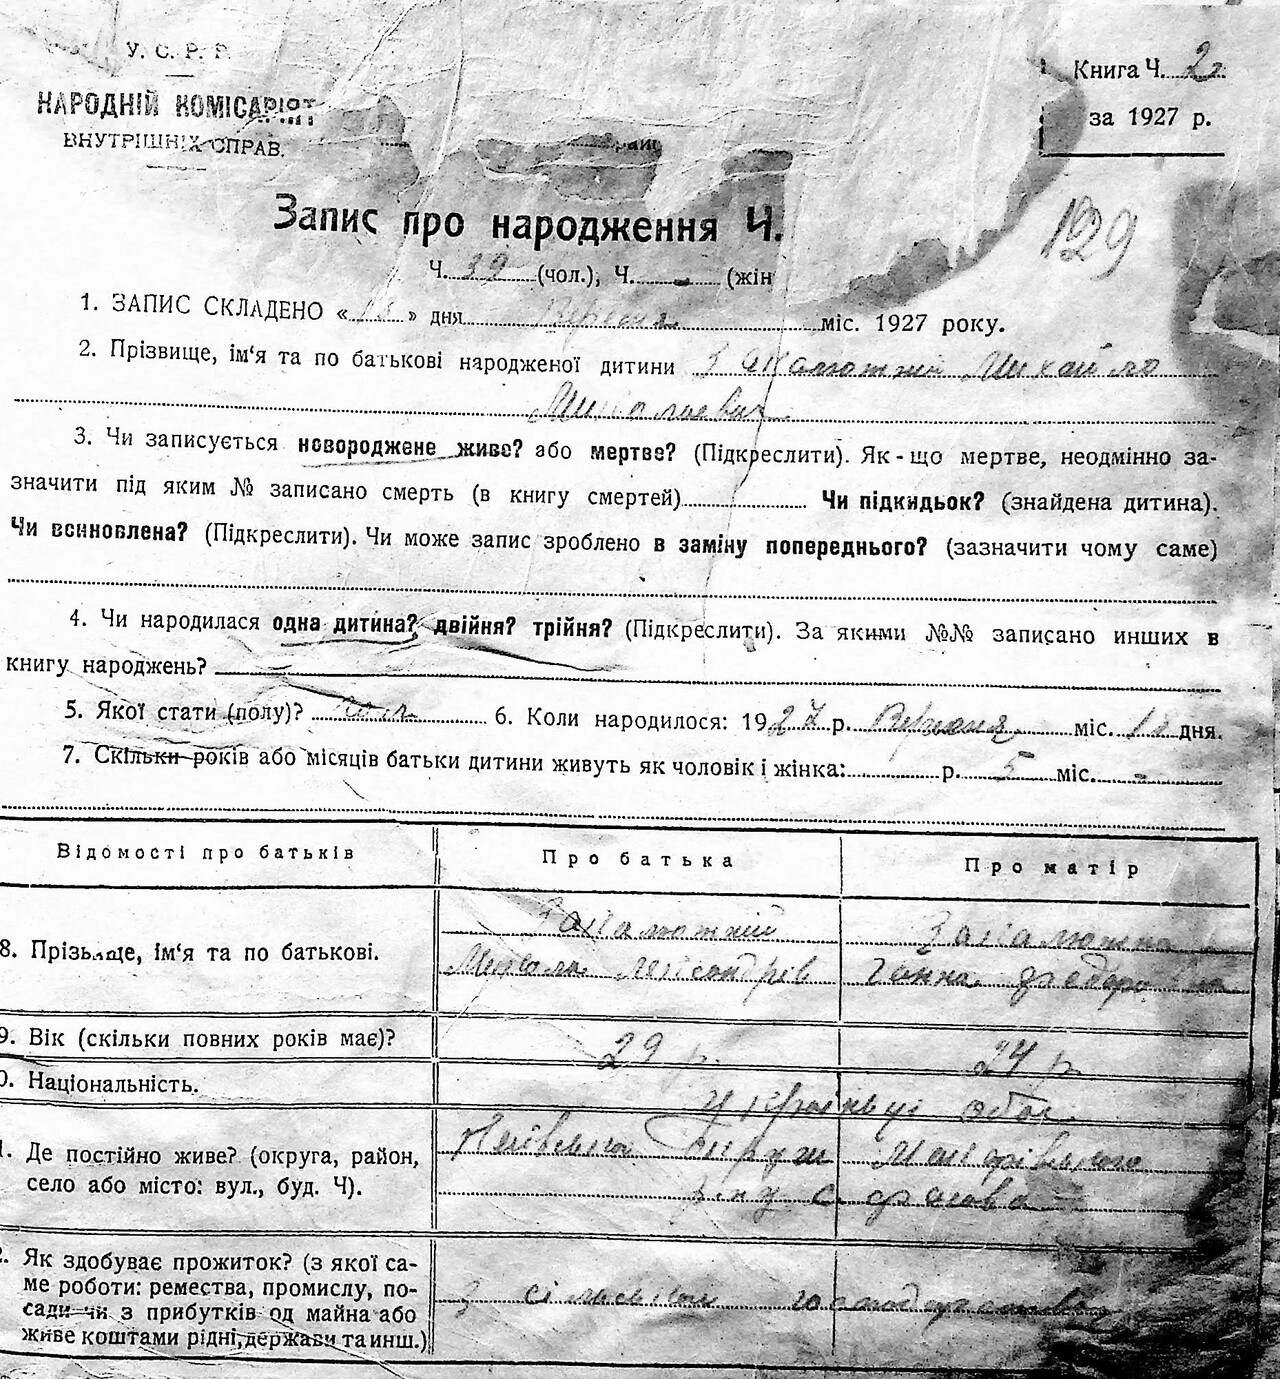 У. С. Р. Р.
НАРОДНІЙ КОМІСАРІЯТ
ВНУТРІШНІХ СПРАВ.
Книга Ч. 2
за 1927 р.
129
Запис про народження Ч.
Ч. (чол.), Ч. - (жін
1. ЗАПИС СКЛАДЕНО « » дня Вересня міс. 1927 року.
2. Прізвище, ім'я та по батькові народженої дитини Михайло
Миколаєвич
3. Чи записується новороджене живе? або мертве? (Підкреслити). Як-що мертве, неодмінно за-
значити під яким № записано смерть (в книгу смертей) Чи підкидьок? (знайдена дитина).
Чи всиновлена? (Підкреслити). Чи може запис зроблено в заміну попереднього? (зазначити чому саме)
4. Чи народилася одна дитина? двійня? трійня? (Підкреслити). За якими №№ записано инших в
книгу народжень?
5. Якої стати (полу)? чол. 6. Коли народилося: 1927 р. Вересня міс. дня.
7. Скільки років або місяців батьки дитини живуть як чоловік і жінка: р. 5 міс. -
Відомості про батьків Про батька Про матір
8. Прізвище, ім'я та по батькові.
Микола Ганна Федоровна
9. Вік (скільки повних років має)? 29 р. 24 р.
0. Національність. Українці обоє
1. Де постійно живе? (округа, район,
село або місто: вул., буд. Ч).
округи
р-ну с.
2. Як здобуває прожиток? (з якої са-
ме роботи: ремества, промислу, по-
сади чи з прибутків од майна або
живе коштами рідні, держави та инш.)
З сільського господарства